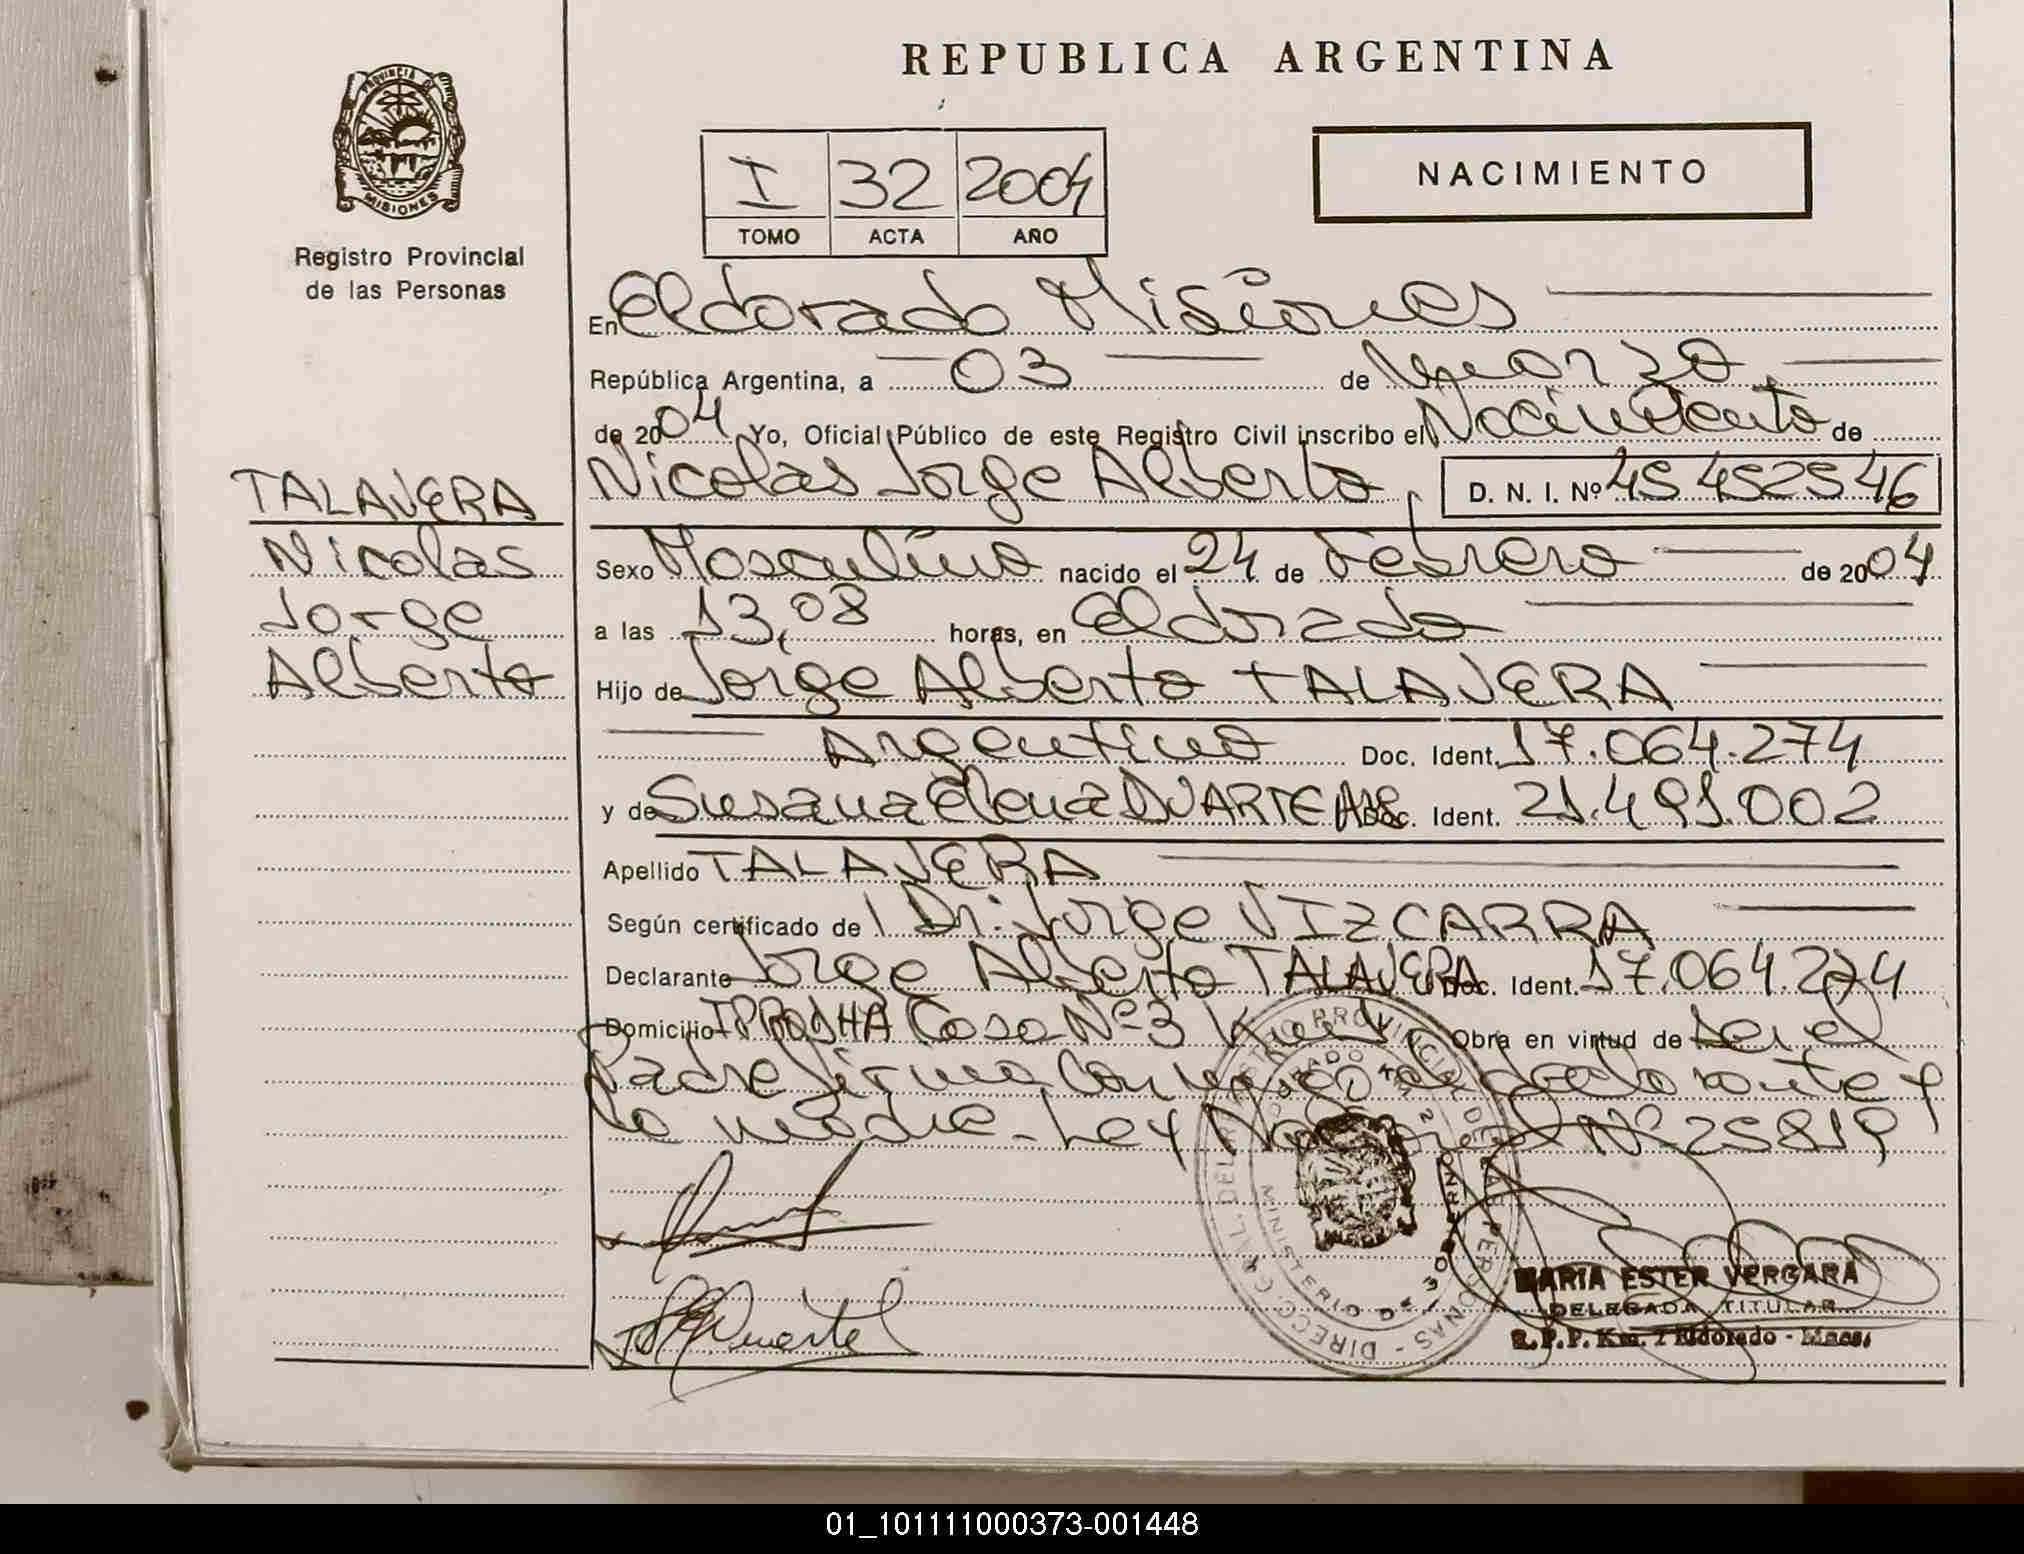 REPUBLICA ARGENTINA
PROVINCIA DE
MISIONES
Registro Provincial
de las Personas
I 32 2004
TOMO ACTA AÑO
NACIMIENTO
En Eldorado Misiones
República Argentina, a 03 de Marzo
de 2004 Yo, Oficial Público de este Registro Civil inscribo el Nacimiento de
Nicolas Jorge Alberto D. N. I. Nº 45452546
TALAVERA
Nicolas
Jorge
Alberto
Sexo Masculino nacido el 24 de Febrero de 2004
a las 13,08 horas, en Eldorado
Hijo de Jorge Alberto TALAVERA
Argentino Doc. Ident. 17.064.274
y de Susana Elena DUARTE Arg Doc. Ident. 21.491.002
Apellido TALAVERA
Según certificado de Dr. Jorge VIZCARRA
Declarante Jorge Alberto TALAVERA Doc. Ident. 17.064.274
Domicilio IPRODHA Casa Nº 3 Obra en virtud de ser el
Padre firma declarante y
la madre - Ley Nacional Nº 25819
DIRECC. GRAL. DEL REGISTRO PROVINCIAL DE LAS PERSONAS
MINISTERIO DE GOBIERNO
ELDORADO KM 2
MARIA ESTER VERGARA
DELEGADA TITULAR
R.P.P. Km. 2 Eldorado - Mnes.
01_101111000373-001448